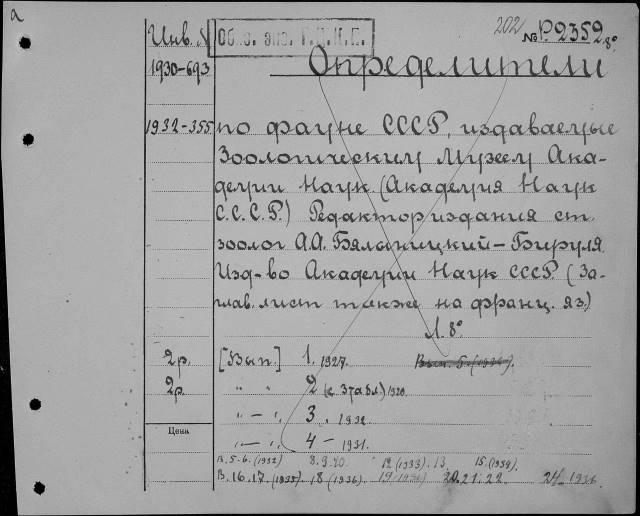 а
202 № Р.2352 8°
Инв. №
Обр. экз. Г.Ц.К.П.
1930-693
Определители
1932-355
по фауне СССР, издаваемые
Зоологическим Музеем Ака-
демии Наук (Академия Наук
С.С.С.Р.) Редактор издания ст.
зоолог А.А. Бялыницкий-Бируля
Изд-во Академии Наук СССР (За-
глав. лист также на франц. яз.)
Л. 8°
2р. [Вып.] 1. 1927. Вып. 5. (1932).
2р. " " 2 (с 37абл.) 1928
" — " 3, 1932
Цена
" — " 4 — 1931.
В.5.6.(1932) 8.9.10. 12 (1933). 13 15.(1934).
В.16.17.(1935) 18 (1936) 19 (1936) 20.21.22 24 1936